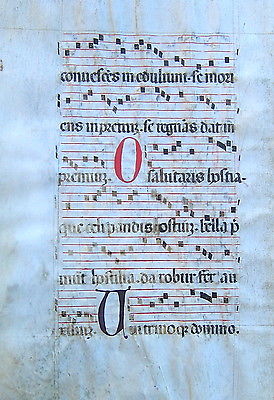 convescēs in edulium. se mori
ens in pretiuz. se regnās dat in
premiuz. O salutaris hostia
que celi pandis hostiuz. bella p
mūt hostilia. da robur fer au
xiliuz. Uni trinoqz domino.